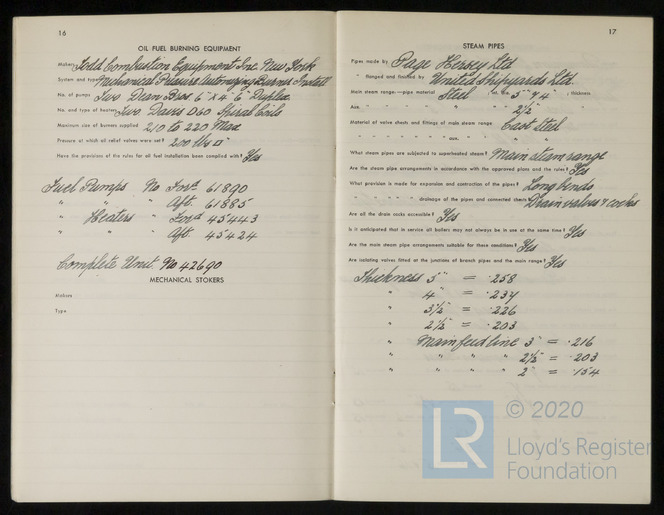 16
OIL FUEL BURNING EQUIPMENT
Makers Todd Combustion Equipment Inc. New York
System and type Mechanical Pressure Automizing Burner Install
No. of pumps Two Dean Bros. 6" x 4" 6" Duplex
No. and type of heaters Two Davis D60 Spiral Coils
Maximum size of burners supplied 210 to 220 Max
Pressure at which oil relief valves were set? 200 lbs □"
Have the provisions of the rules for oil fuel installation been complied with? Yes
Fuel Pumps No Ford 61890
" " " Aft. 61885
" Heaters " Ford 45443
" " " Aft. 45424
Complete Unit No 42690
MECHANICAL STOKERS
Makers
Type
17
STEAM PIPES
Pipes made by Page Hersey Ltd
" flanged and finished by United Shipyards Ltd.
Main steam range:—pipe material Steel ; dia. 5" & 4" ; thickness
Aux. " " " " 2½" "
Material of valve chests and fittings of main steam range Cast Steel
" " " " " aux. " "
What steam pipes are subject to superheated steam? Main steam range
Are the steam pipe arrangements in accordance with the approved plans and the rules? Yes
What provision is made for expansion and contraction of the pipes? Long bends
" " " " drainage of the pipes and connected chests? Drain valves & cocks
Are all the drain cocks accessible? Yes
Is it anticipated that in service all boilers may not always be in use at the same time? Yes
Are the main steam pipe arrangements suitable for these conditions? Yes
Are isolating valves fitted at the junctions of branch pipes and the main range? Yes
Thickness 5" = .258
" 4" = .237
" 3½" = .226
" 2½" = .203
" Main feed line 3" = .216
" " " " 2½" = .203
" " " " 2" = .154
© 2020
LR
Lloyd's Register
Foundation